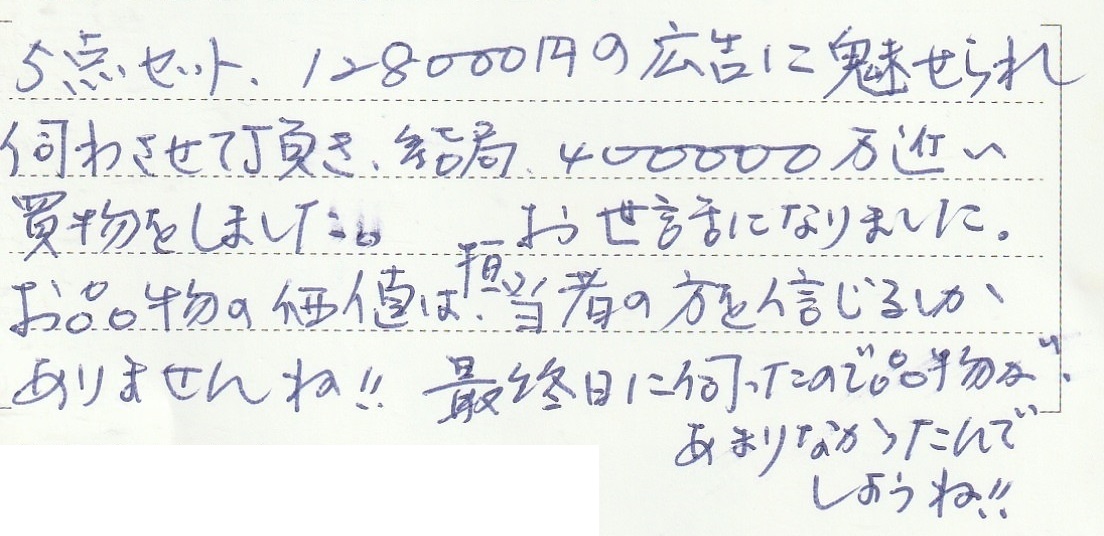 5点セット、128000円の広告に魅せられ
伺わさせて頂き、結局、400000万近い
買物をしました。 お世話になりました。
お品物の価値は、担当者の方を信じるしか
ありませんね!! 最終日に伺ったので品物が、
あまりなかったんで
しょうね!!